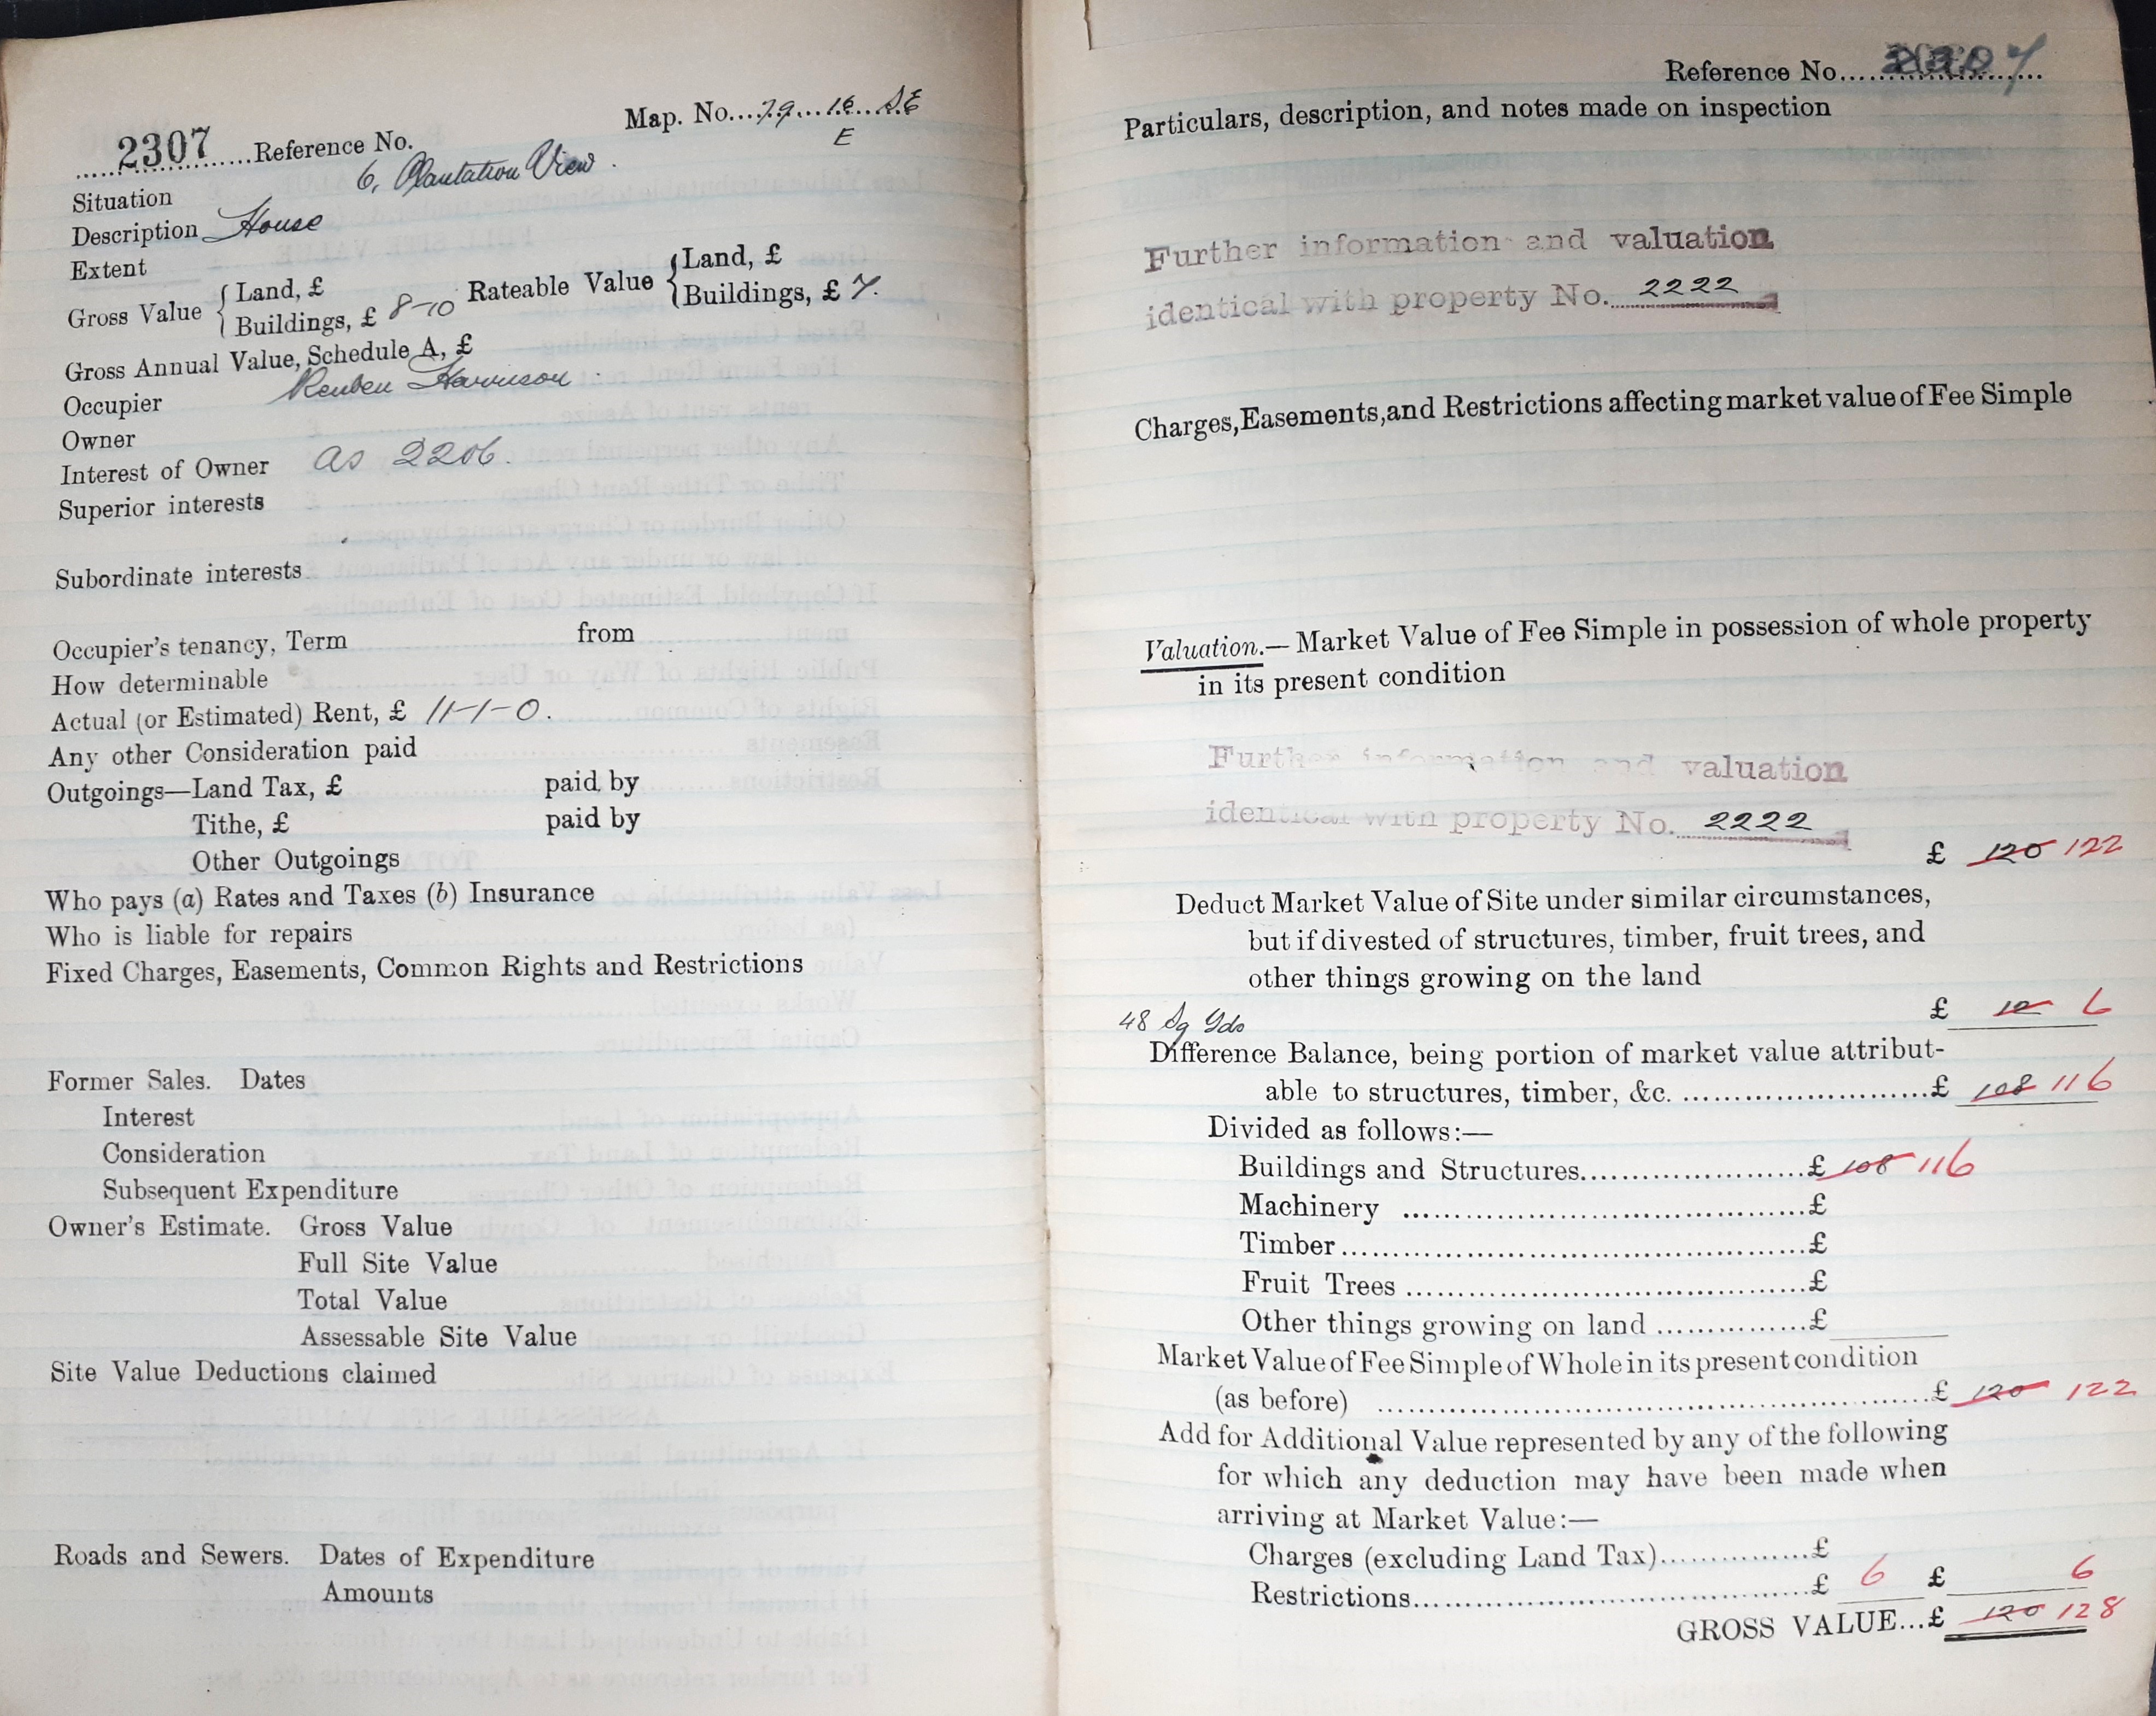 Map. No....79...16...S.E
E
2307 Reference No.
Situation 6, Plantation View.
Description House
Extent
Gross Value { Land, £
Buildings, £ 8-10
Rateable Value { Land, £
Buildings, £ 7.
Gross Annual Value, Schedule A, £
Occupier Reuben Harrison.
Owner
Interest of Owner as 2206.
Superior interests
Subordinate interests
Occupier's tenancy, Term from
How determinable
Actual (or Estimated) Rent, £ 11-1-0.
Any other Consideration paid
Outgoings—Land Tax, £ paid by
Tithe, £ paid by
Other Outgoings
Who pays (a) Rates and Taxes (b) Insurance
Who is liable for repairs
Fixed Charges, Easements, Common Rights and Restrictions
Former Sales. Dates
Interest
Consideration
Subsequent Expenditure
Owner's Estimate. Gross Value
Full Site Value
Total Value
Assessable Site Value
Site Value Deductions claimed
Roads and Sewers. Dates of Expenditure
Amounts
Reference No.
Particulars, description, and notes made on inspection
Further information and valuation
identical with property No. 2222
Charges, Easements, and Restrictions affecting market value of Fee Simple
Valuation.— Market Value of Fee Simple in possession of whole property
in its present condition
Further information and valuation
identical with property No. 2222
£ 120 122
Deduct Market Value of Site under similar circumstances,
but if divested of structures, timber, fruit trees, and
other things growing on the land
£ 12 6
48 Sq Yds
Difference Balance, being portion of market value attribut-
able to structures, timber, &c. ............£ 108 116
Divided as follows:—
Buildings and Structures............£ 108 116
Machinery ............£
Timber............£
Fruit Trees ............£
Other things growing on land ............£
Market Value of Fee Simple of Whole in its present condition
(as before) ............£ 120 122
Add for Additional Value represented by any of the following
for which any deduction may have been made when
arriving at Market Value:—
Charges (excluding Land Tax)............£
Restrictions............£ 6 £ 6
GROSS VALUE...£ 120 128